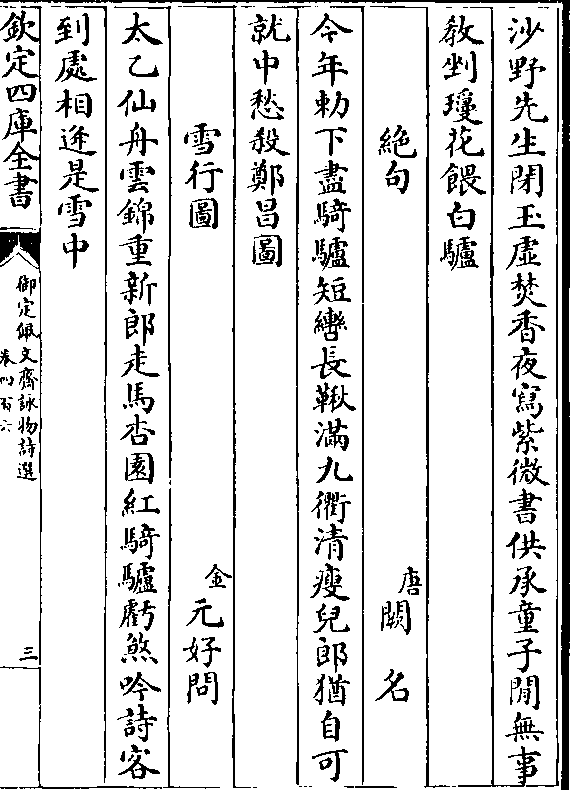 沙野先生閉玉虛焚香夜寫紫微書供承童子閒無事
教剉瓊花餵白驢
絶句
唐闕名
今年勅下盡騎驢短轡長鞦滿九衢清瘦兒郎猶自可
就中愁殺鄭昌圖
雪行圖
金元好問
太乙仙舟雲錦重新郎走馬杏園紅騎驢虧煞吟詩客
到處相逄是雪中
欽定四庫全書
御定佩文齋詠物詩選
卷四百六
三